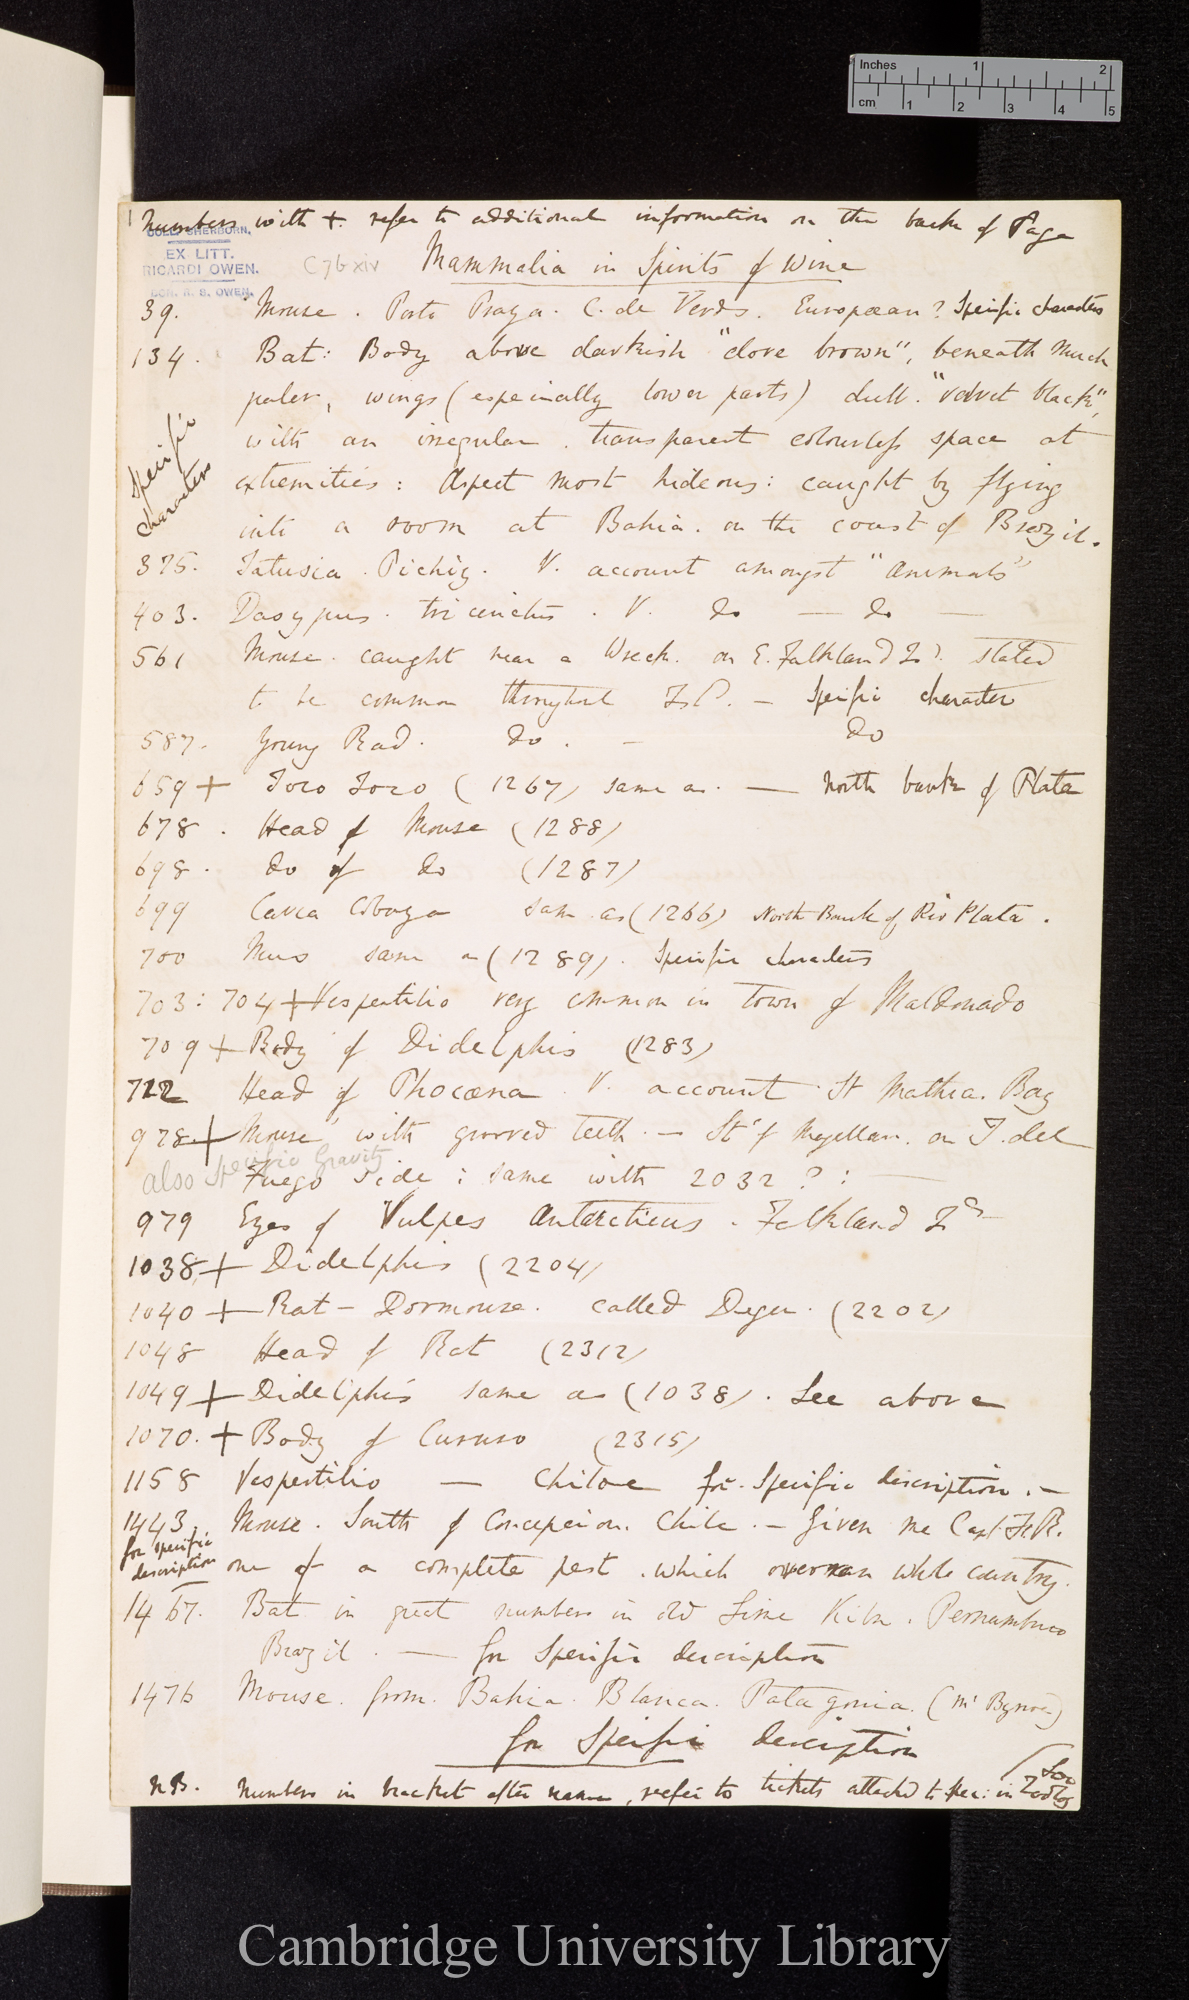 Inches 1 2
cm 1 2 3 4 5
1 Numbers with +. refer to additional information on the back of Page
COLL. SHERBORN.
EX LITT.
RICARDI OWEN.
C 76 xiv
Mammalia in Spirits of Wine
39. Mouse. Porto Praya. C. de Verds. European? Specific characters
134. Bat: Body above darkish "clove brown", beneath much
paler, wings (especially lower parts) dull. "velvet black",
with an irregular. transparent colourless space at
extremities: Aspect most hideous: caught by flying
into a room at Bahia. on the coast of Brazil.
Specific characters
375. Tatusia. Pichiy. V. account amongst "Animals"
403. Dasypus. tricinctus. V. do — do —
561 Mouse. caught near a Wreck. on E. Falkland Isd. stated
to be common throughout Isd. — Specific character
587. Young Rad. do. — do
659 + Toco Toco (1267) same as. — North bank of Plata
678. Head of Mouse (1288)
698. do of do (1287)
699 Cavia Cobaya same as (1266) North Bank of Rio Plata.
700 Mus same as (1289). Specific characters
703: 704 + Vespertilio very common in town of Maldonado
709 + Body of Didelphis (1283)
722 Head of Phocæna V. account St Mathia. Bay
978 + "Mouse" with grooved teeth. — St. of Magellan. on T. del
Fuego side: same with 2032?: —
also Specific Gravity
979 Eyes of Vulpes Antarcticus. Falkland Is —
1038: + Didelphis (2204)
1040 + Rat — Dormouse. called Degu. (2202)
1048 Head of Rat (2312)
1049 + Didelphis same as (1038). See above
1070. + Body of Cururo (2315)
1158 Vespertilio — Chiloe for. Specific discription. —
1443. Mouse. South of Concepcion. Chile. — Given me Capt. F.R.
for specific description
one of a complete pest. which overran whole country.
1467. Bat in great numbers in old Lime Kiln. Pernambuco
Brazil. — for Specific discription
1476 Mouse. from. Bahia. Blanca. Patagonia. (Mr Bynoe)
for Specific discription
N.B. Numbers in bracket after name, refer to tickets attached to spec: in Zoolog
Soc
Cambridge University Library